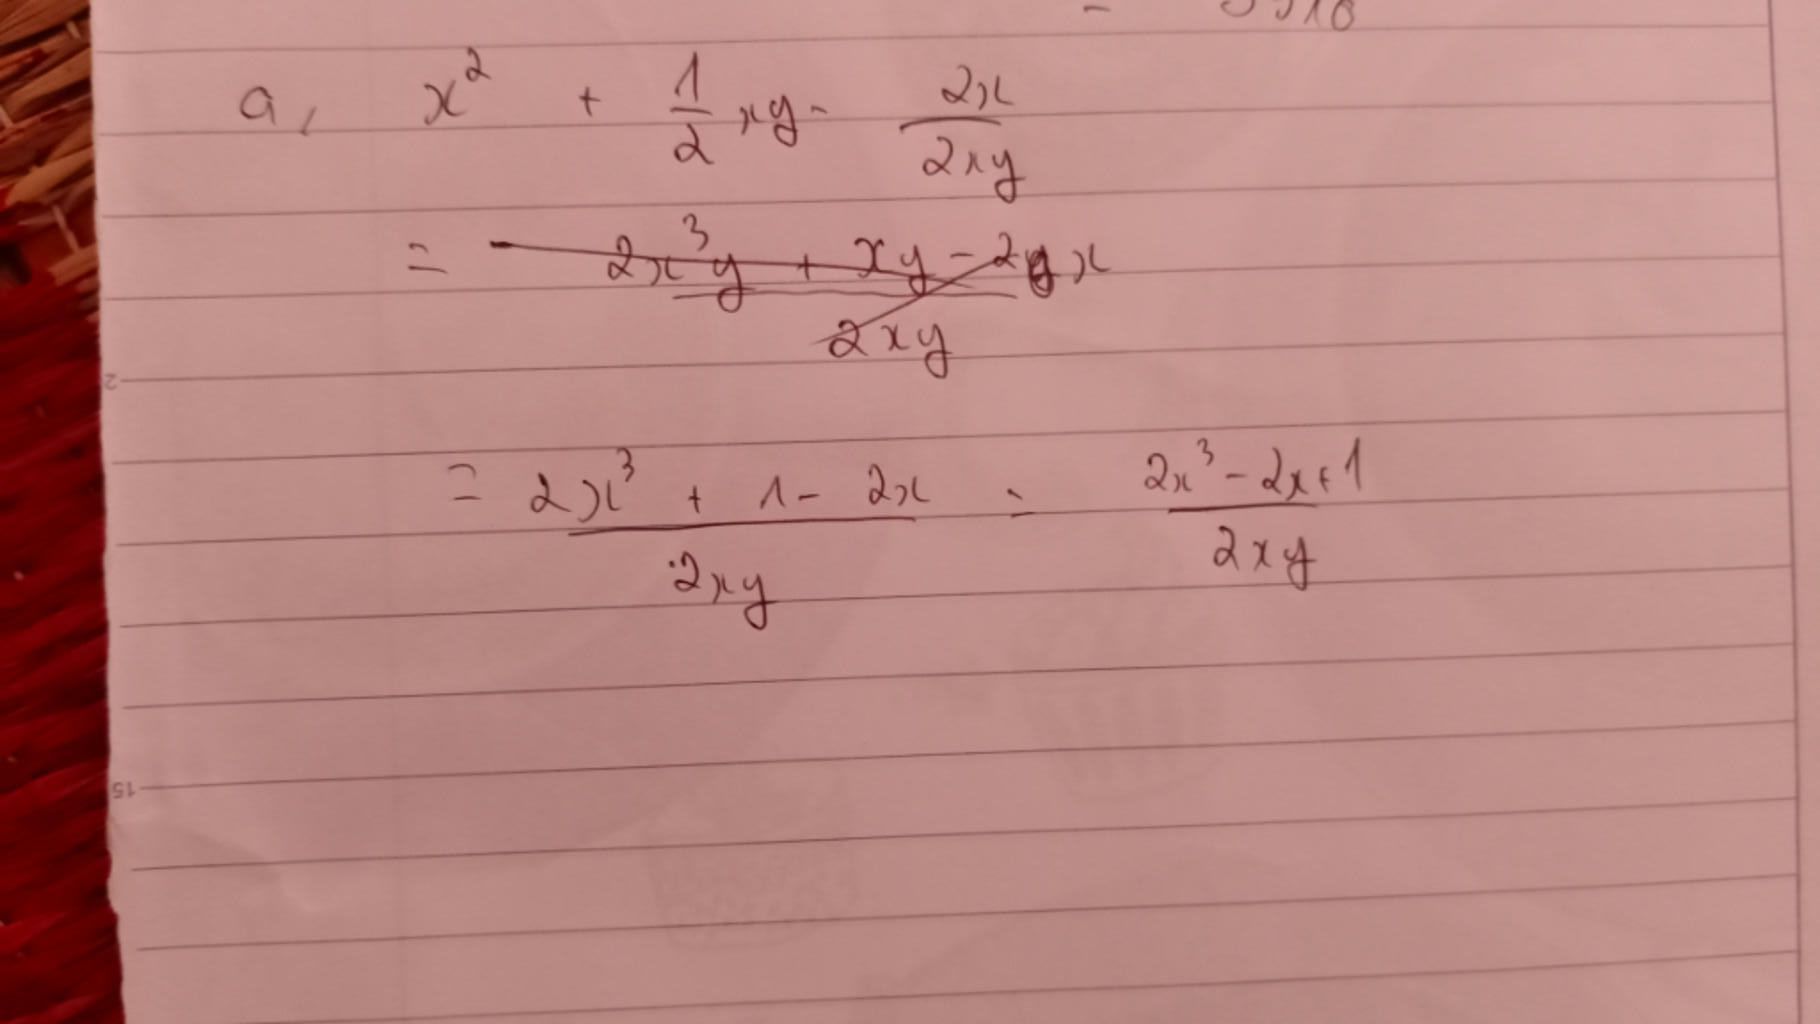 a, x² + 1/2 xy - 2x/2xy
= 2x³y + xy - 2yx / 2xy
= 2x³ + 1 - 2x / 2xy = 2x³ - 2x + 1 / 2xy
2
15